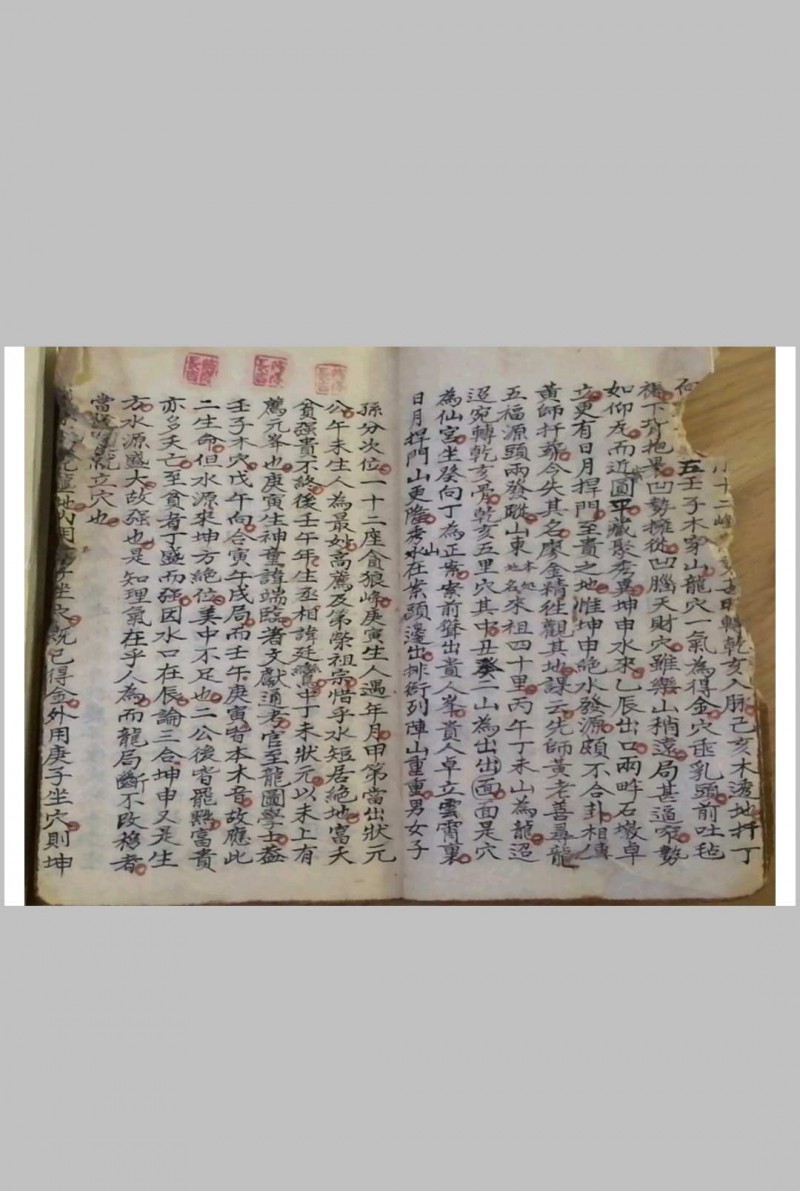 十二峰
轉乾亥入脉己亥木透地扦丁
五壬子木穿山龍穴一氣為得金穴乳頭前吐毡
下均抱凹勢擁從凹腦天財穴雖樂山稍遠局甚逼窄勢
如仰瓦而近圓平藏聚秀異坤申水來乙辰出口兩畔石墩卓
立更有日月捍門至貴之地惟坤申絶水發源頗不合卦相傳
黄師扦葬今失其名廖金精徃觀其地課云先師黄老善尋龍
五福源頭兩發蹤山東本處地名來祖四十里丙午丁未山為龍迢
迢宛轉乾亥骨乾亥五里穴其中丑癸二山為出出面面是穴
為仙宮坐癸向丁為正案案前聳出貴人峯貴人卓立雲霄裏
日月捍門山更隆秀水在案頭邊出排衙列陣山重重男女子
孫分次位一十二座貪狼峰庚寅生人遇年月甲第當出狀元
公午未生人為最妙高薦及第榮祖宗惜乎水短居絶地富夭
貧强貴不終後壬午年生丞相諱廷鸞申丁未狀元以未上有
薦元峯也庚寅生神童諱端臨著文獻通考官至龍圖學士盖
壬子木穴戊午向合寅午戌局而壬午庚寅皆本木音故應此
二生命但水源來坤方絶位美中不足也二公後皆罷黜富貴
亦多夭亡至貧者丁盛而强因水口在辰論三合坤申又是生
方水源盛大故强也是知理氣在乎人為而龍局斷不改移者
當立穴也
坐穴既已得金外用庚子坐穴則坤